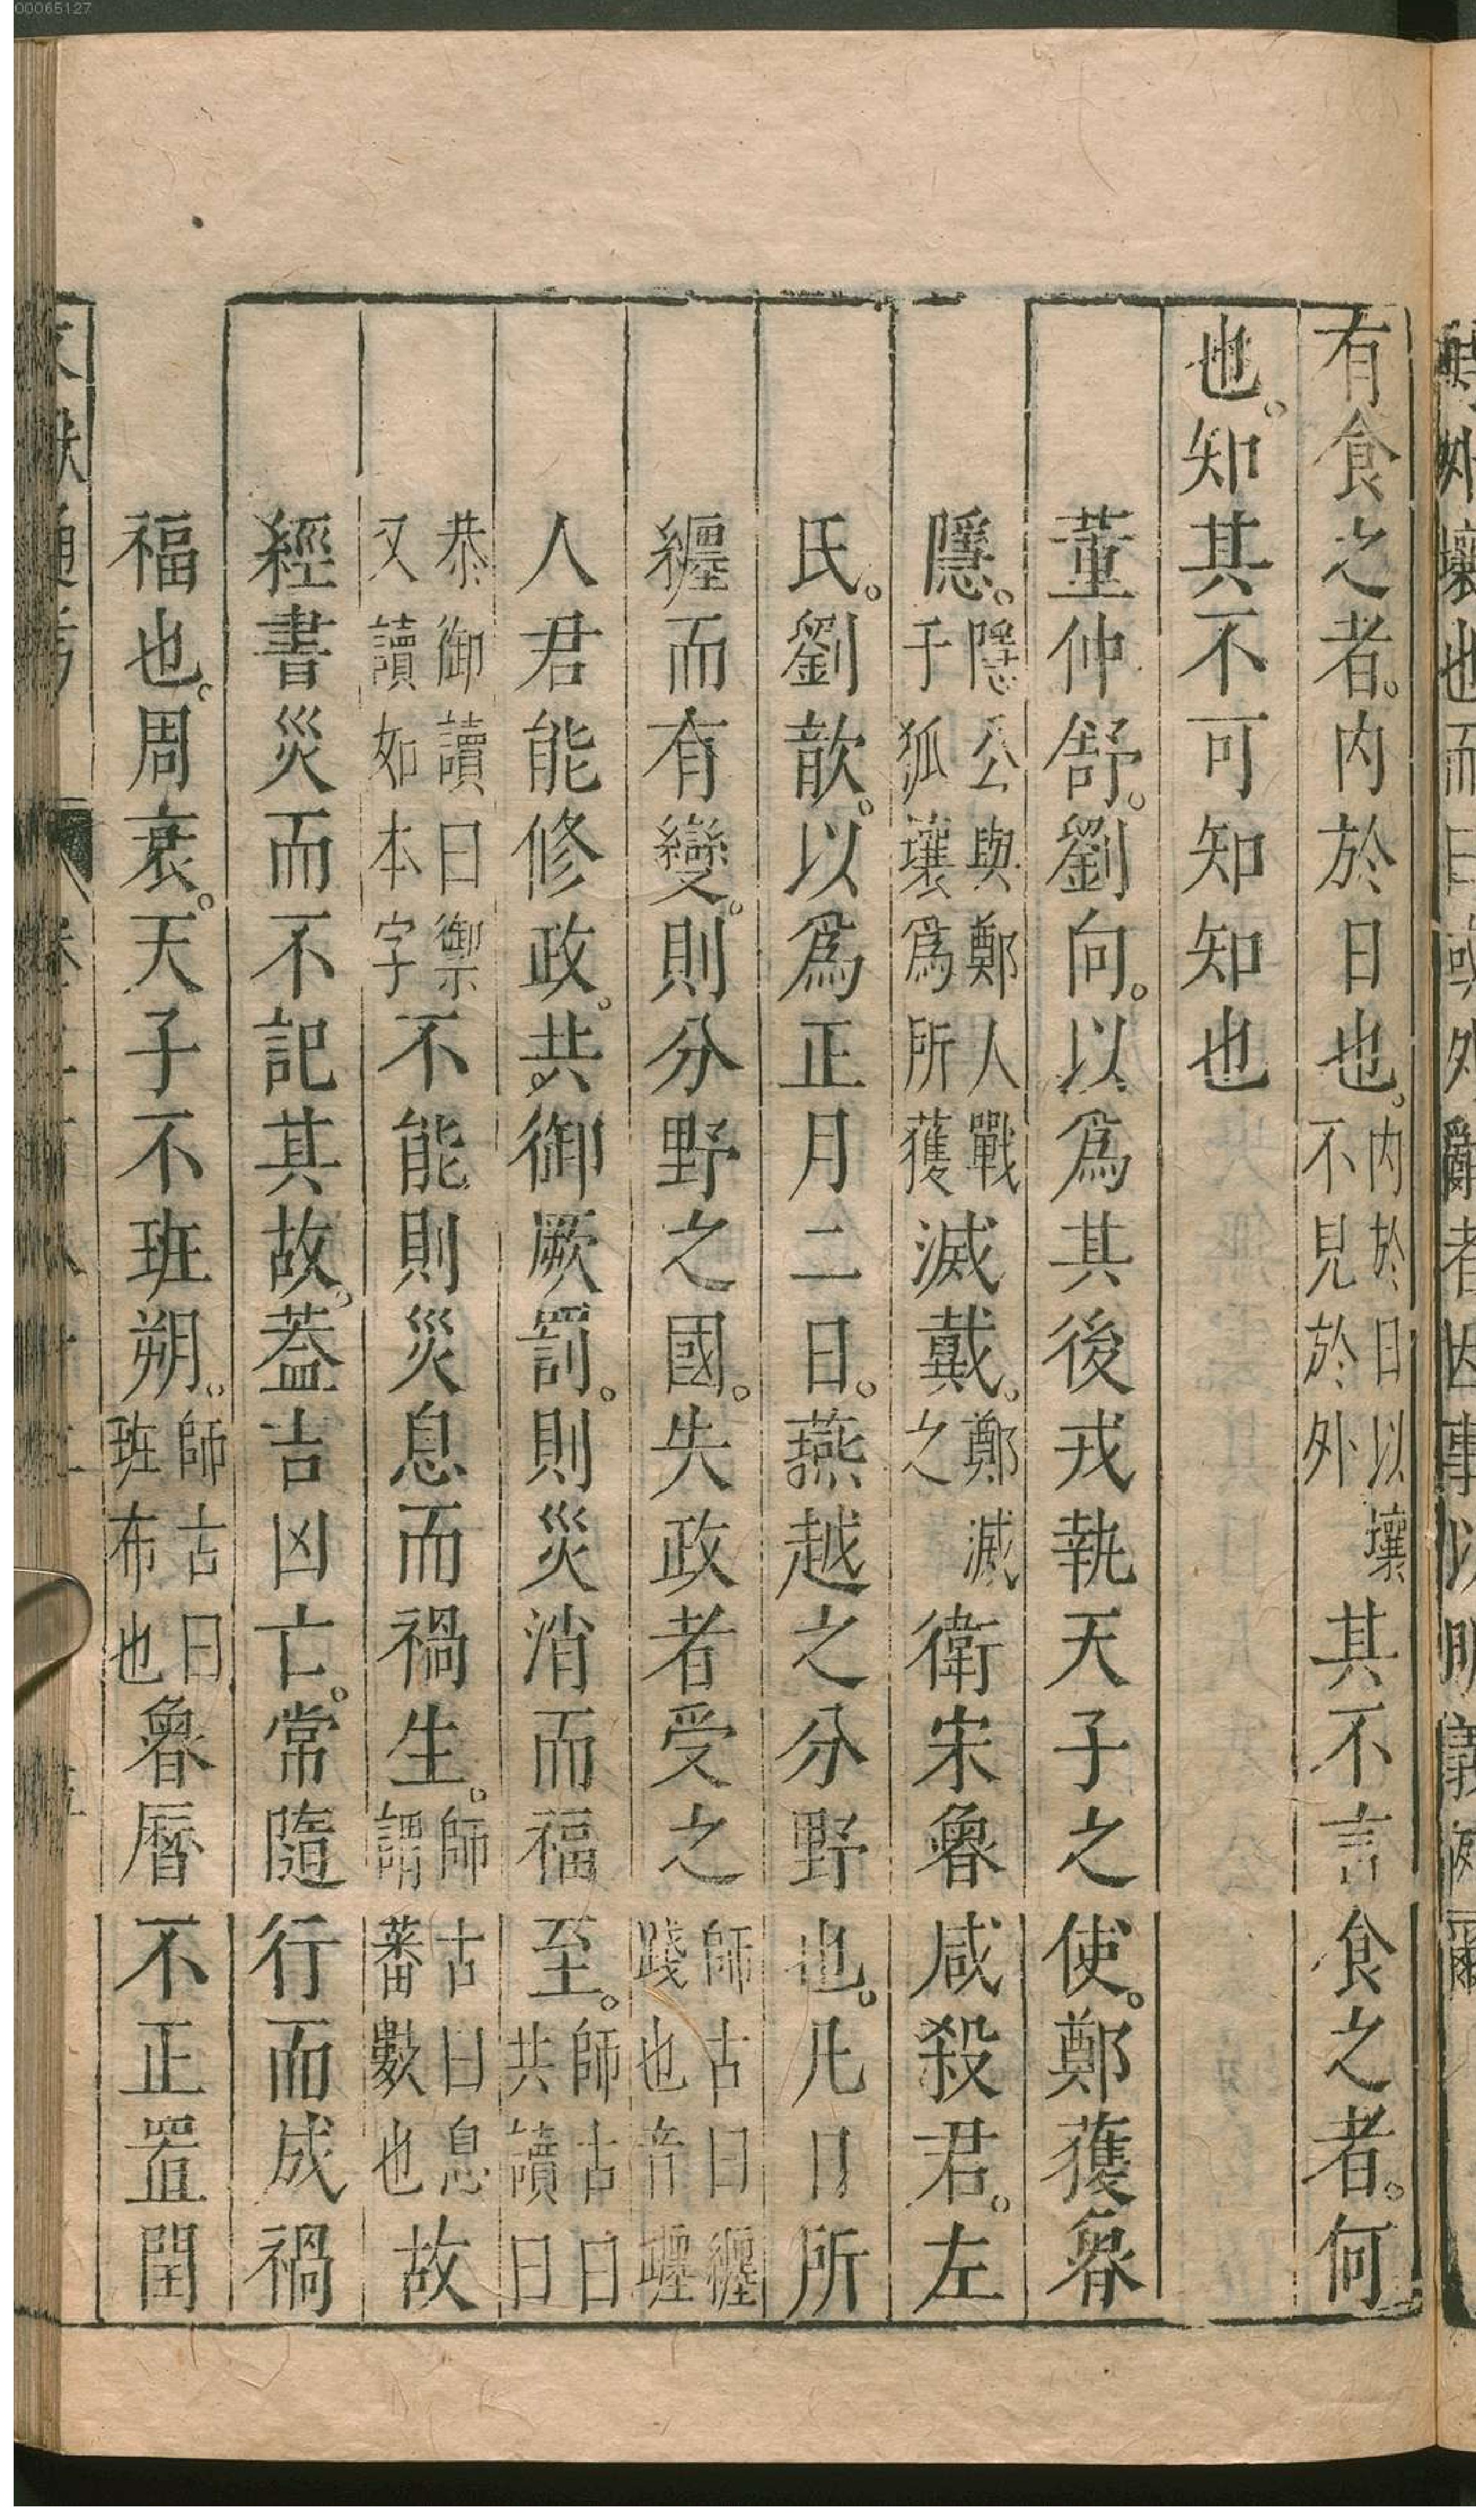 00065127
有食之者。内於日也。内於日以壤不見於外其不言食之者。何
也。知其不可知知也
董仲舒。劉向。以爲其後戎執天子之使。鄭獲魯
隱。隱公與鄭人戰于狐壤爲所獲滅戴。鄭滅之衛宋魯咸殺君。左
氏。劉歆。以爲正月二日。燕越之分野也。凡日所
纏而有變。則分野之國。失政者受之師古曰纏踐也音躔
人君能修政。共御厥罰。則災消而福至。師古曰共讀曰
恭御讀曰禦又讀如本字不能則災息而禍生。師古曰息謂蕃數也故
經書災而不記其故。葢吉凶亡。常隨行而成禍
福也。周衰。天子不班朔。師古曰班布也魯曆不正置閏
文獻通考